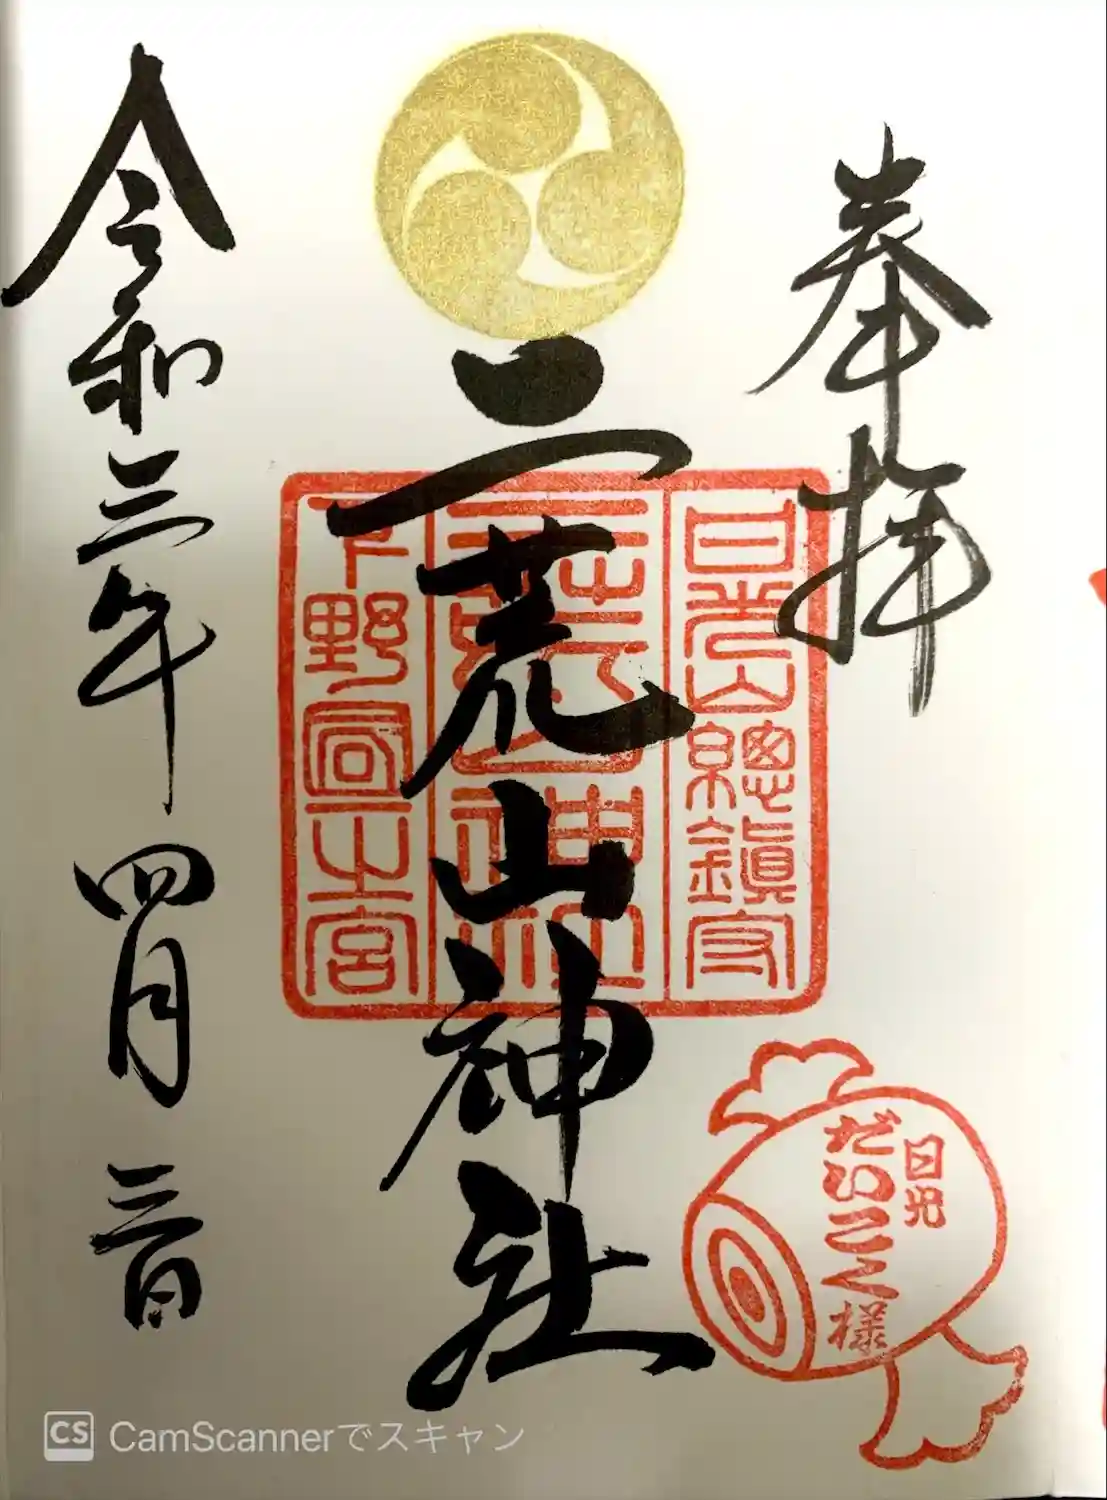 奉拝
日光山總鎮守
二荒山神社
下野国一之宮
二荒山神社
令和三年四月三日
日光
だいこく様
CS CamScannerでスキャン